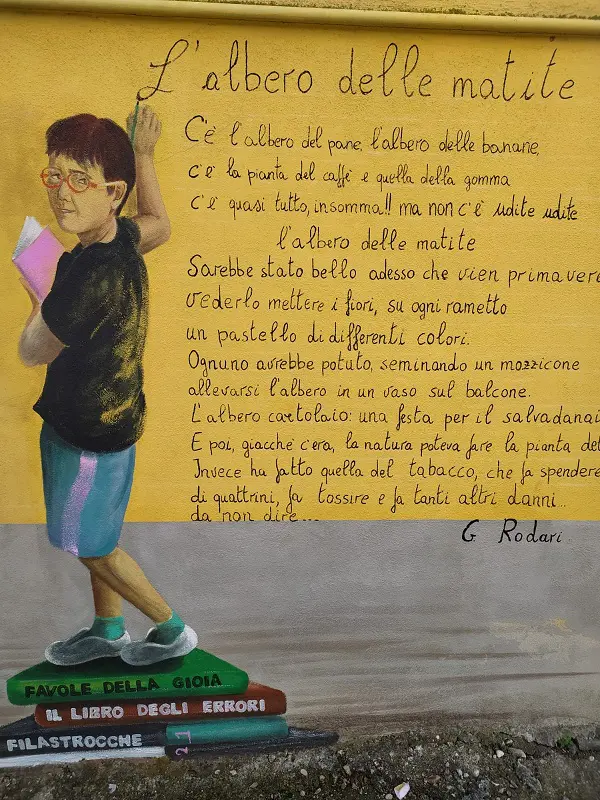 L'albero delle matite
C'è l'albero del pane, l'albero delle banane,
c'è la pianta del caffè e quella della gomma
c'è quasi tutto, insomma!! ma non c'è udite udite
l'albero delle matite
Sarebbe stato bello adesso che vien primaver
vederlo mettere i fiori, su ogni rametto
un pastello di differenti colori.
Ognuno avrebbe potuto, seminando un mozzicone
allevarsi l'albero in un vaso sul balcone.
L'albero cartolaio: una festa per il salvadanai
E poi, giacche c'era, la natura poteva fare la pianta del
Invece ha fatto quella del tabacco, che fa spendere
di quattrini, fa tossire e fa tanti altri danni...
da non dire...
G Rodari
FAVOLE DELLA GIOIA
IL LIBRO DEGLI ERRORI
FILASTROCCHE